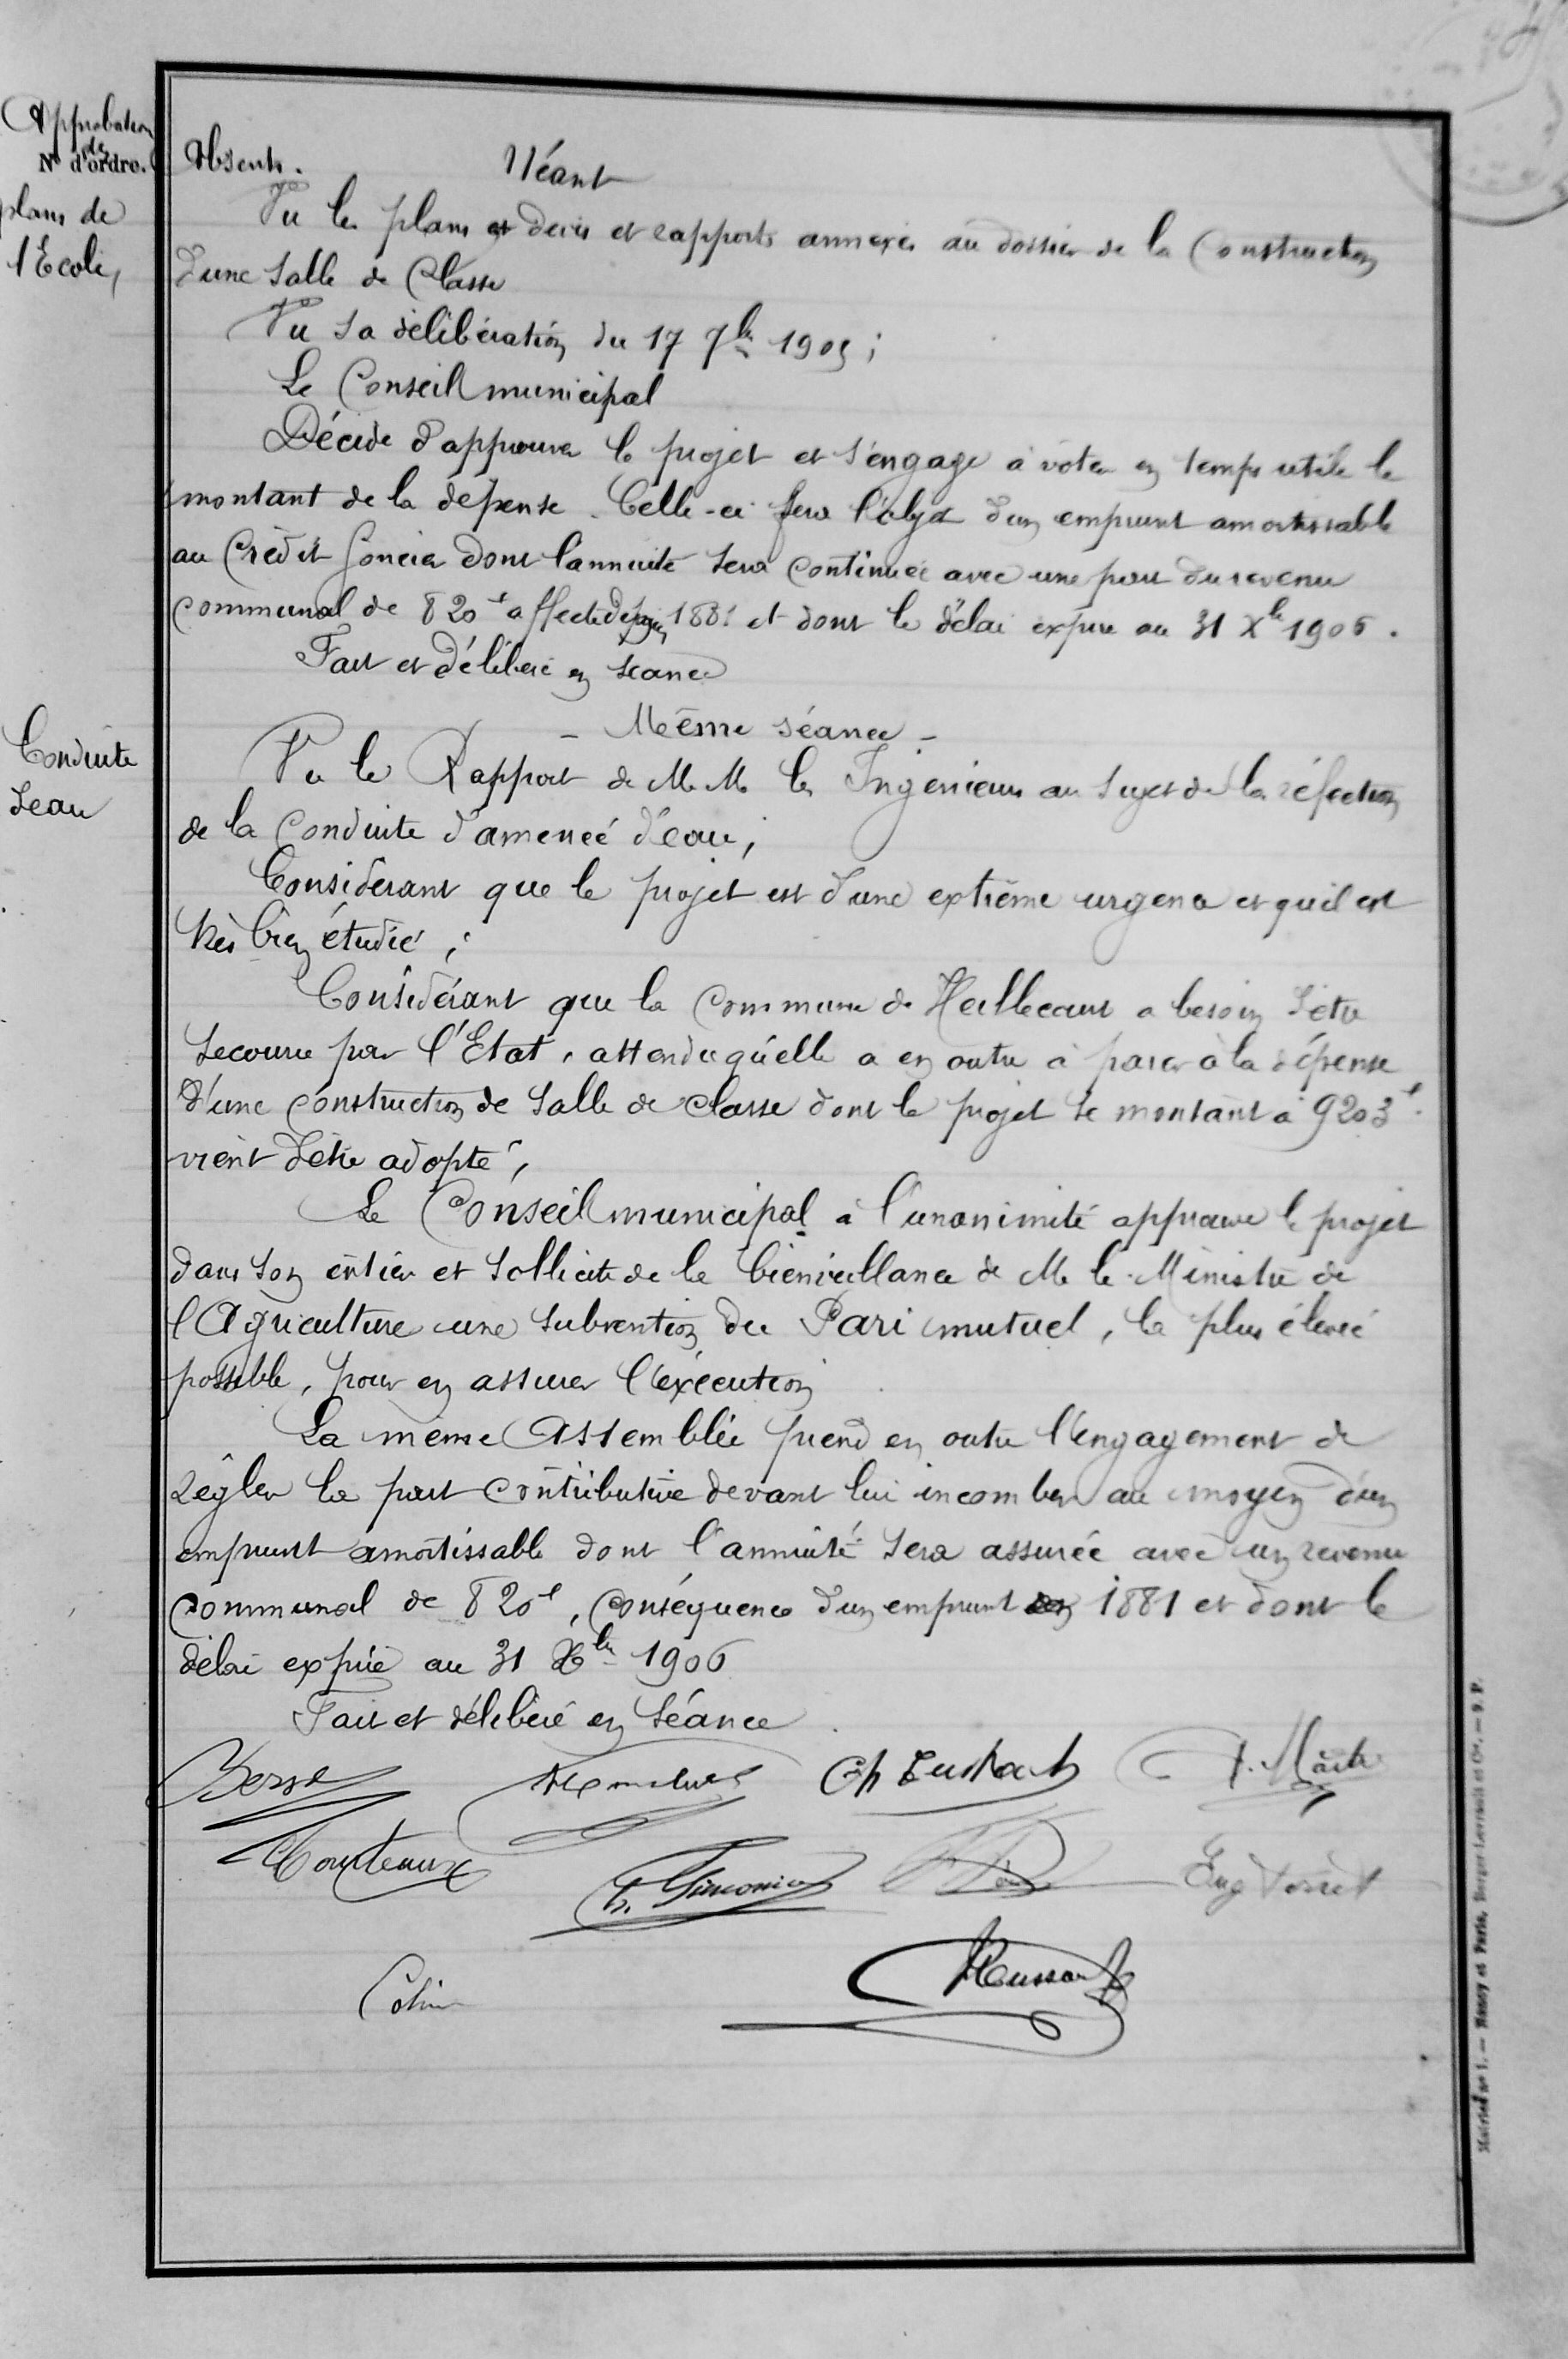 Approbation
de
N° d'ordre.
plans de
l'Ecole,
Absents. Néant
Vu les plans et devis et rapports annexés au dossier de la Construction
d'une Salle de Classe
Vu sa délibération du 17 7bre 1905 ;
Le Conseil municipal
Décide d'approuver le projet et s'engage à voter en temps utile le
montant de la dépense. Celle-ci fera l'objet d'un emprunt amortissable
au Crédit foncier dont l'annuité sera continuée avec une part du revenu
communal de 820 f affecté depuis 1881 et dont le délai expire au 31 Xbre 1906.
Fait et délibéré en séance
- Même séance -
Conduite
d'eau
Vu le Rapport de M.M. les Ingénieurs au sujet de la réfection
de la Conduite d'amenée d'eau,
Considérant que le projet est d'une extrême urgence et qu'il est
très bien étudié ;
Considérant que la Commune de a besoin d'être
secourue par l'Etat, attendu qu'elle a en outre à parer à la dépense
d'une construction de salle de classe dont le projet se montant à 9203 f.
vient d'être adopté,
Le Conseil municipal à l'unanimité approuve le projet
dans son entier et sollicite de la bienveillance de M. le Ministre de
l'Agriculture une subvention du Pari mutuel, la plus élevée
possible, pour en assurer l'exécution
La même Assemblée prend en outre l'engagement de
régler la part contributive devant lui incomber au moyen d'un
emprunt amortissable dont l'annuité sera assurée avec un revenu
communal de 820 f, conséquence d'un emprunt 1881 et dont le
délai expire au 31 Xbre 1906
Fait et délibéré en séance
Ch
Courteaux
Eug
Colin
Husson
Nancy et Paris, Berger-Levrault et Cie. — 9 P.